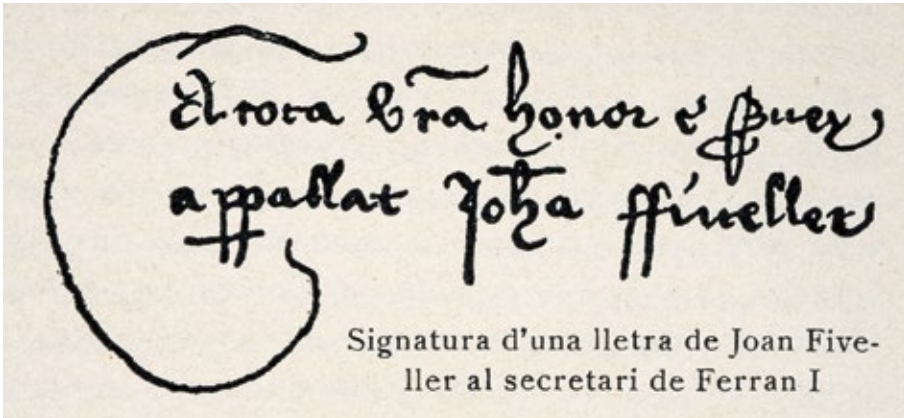 A tota vra honor e
appallat Joha ffiueller
Signatura d'una lletra de Joan Five-
ller al secretari de Ferran I